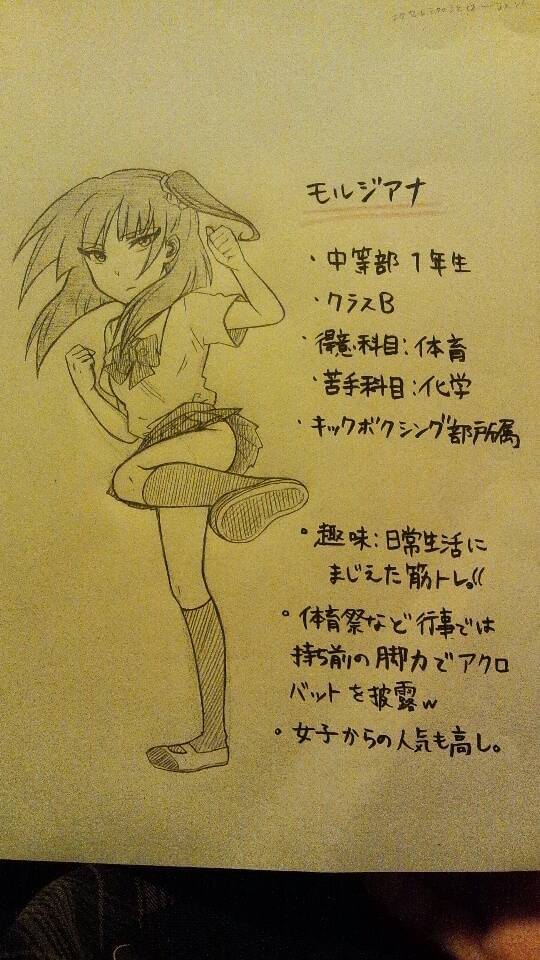 モルジアナ
・中等部 1年生
・クラスB
・得意科目:体育
・苦手科目:化学
・キックボクシング部所属
・趣味:日常生活に
まじえた筋トレ。
・体育祭など行事では
持ち前の脚力でアクロ
バットを披露w
・女子からの人気も高し。